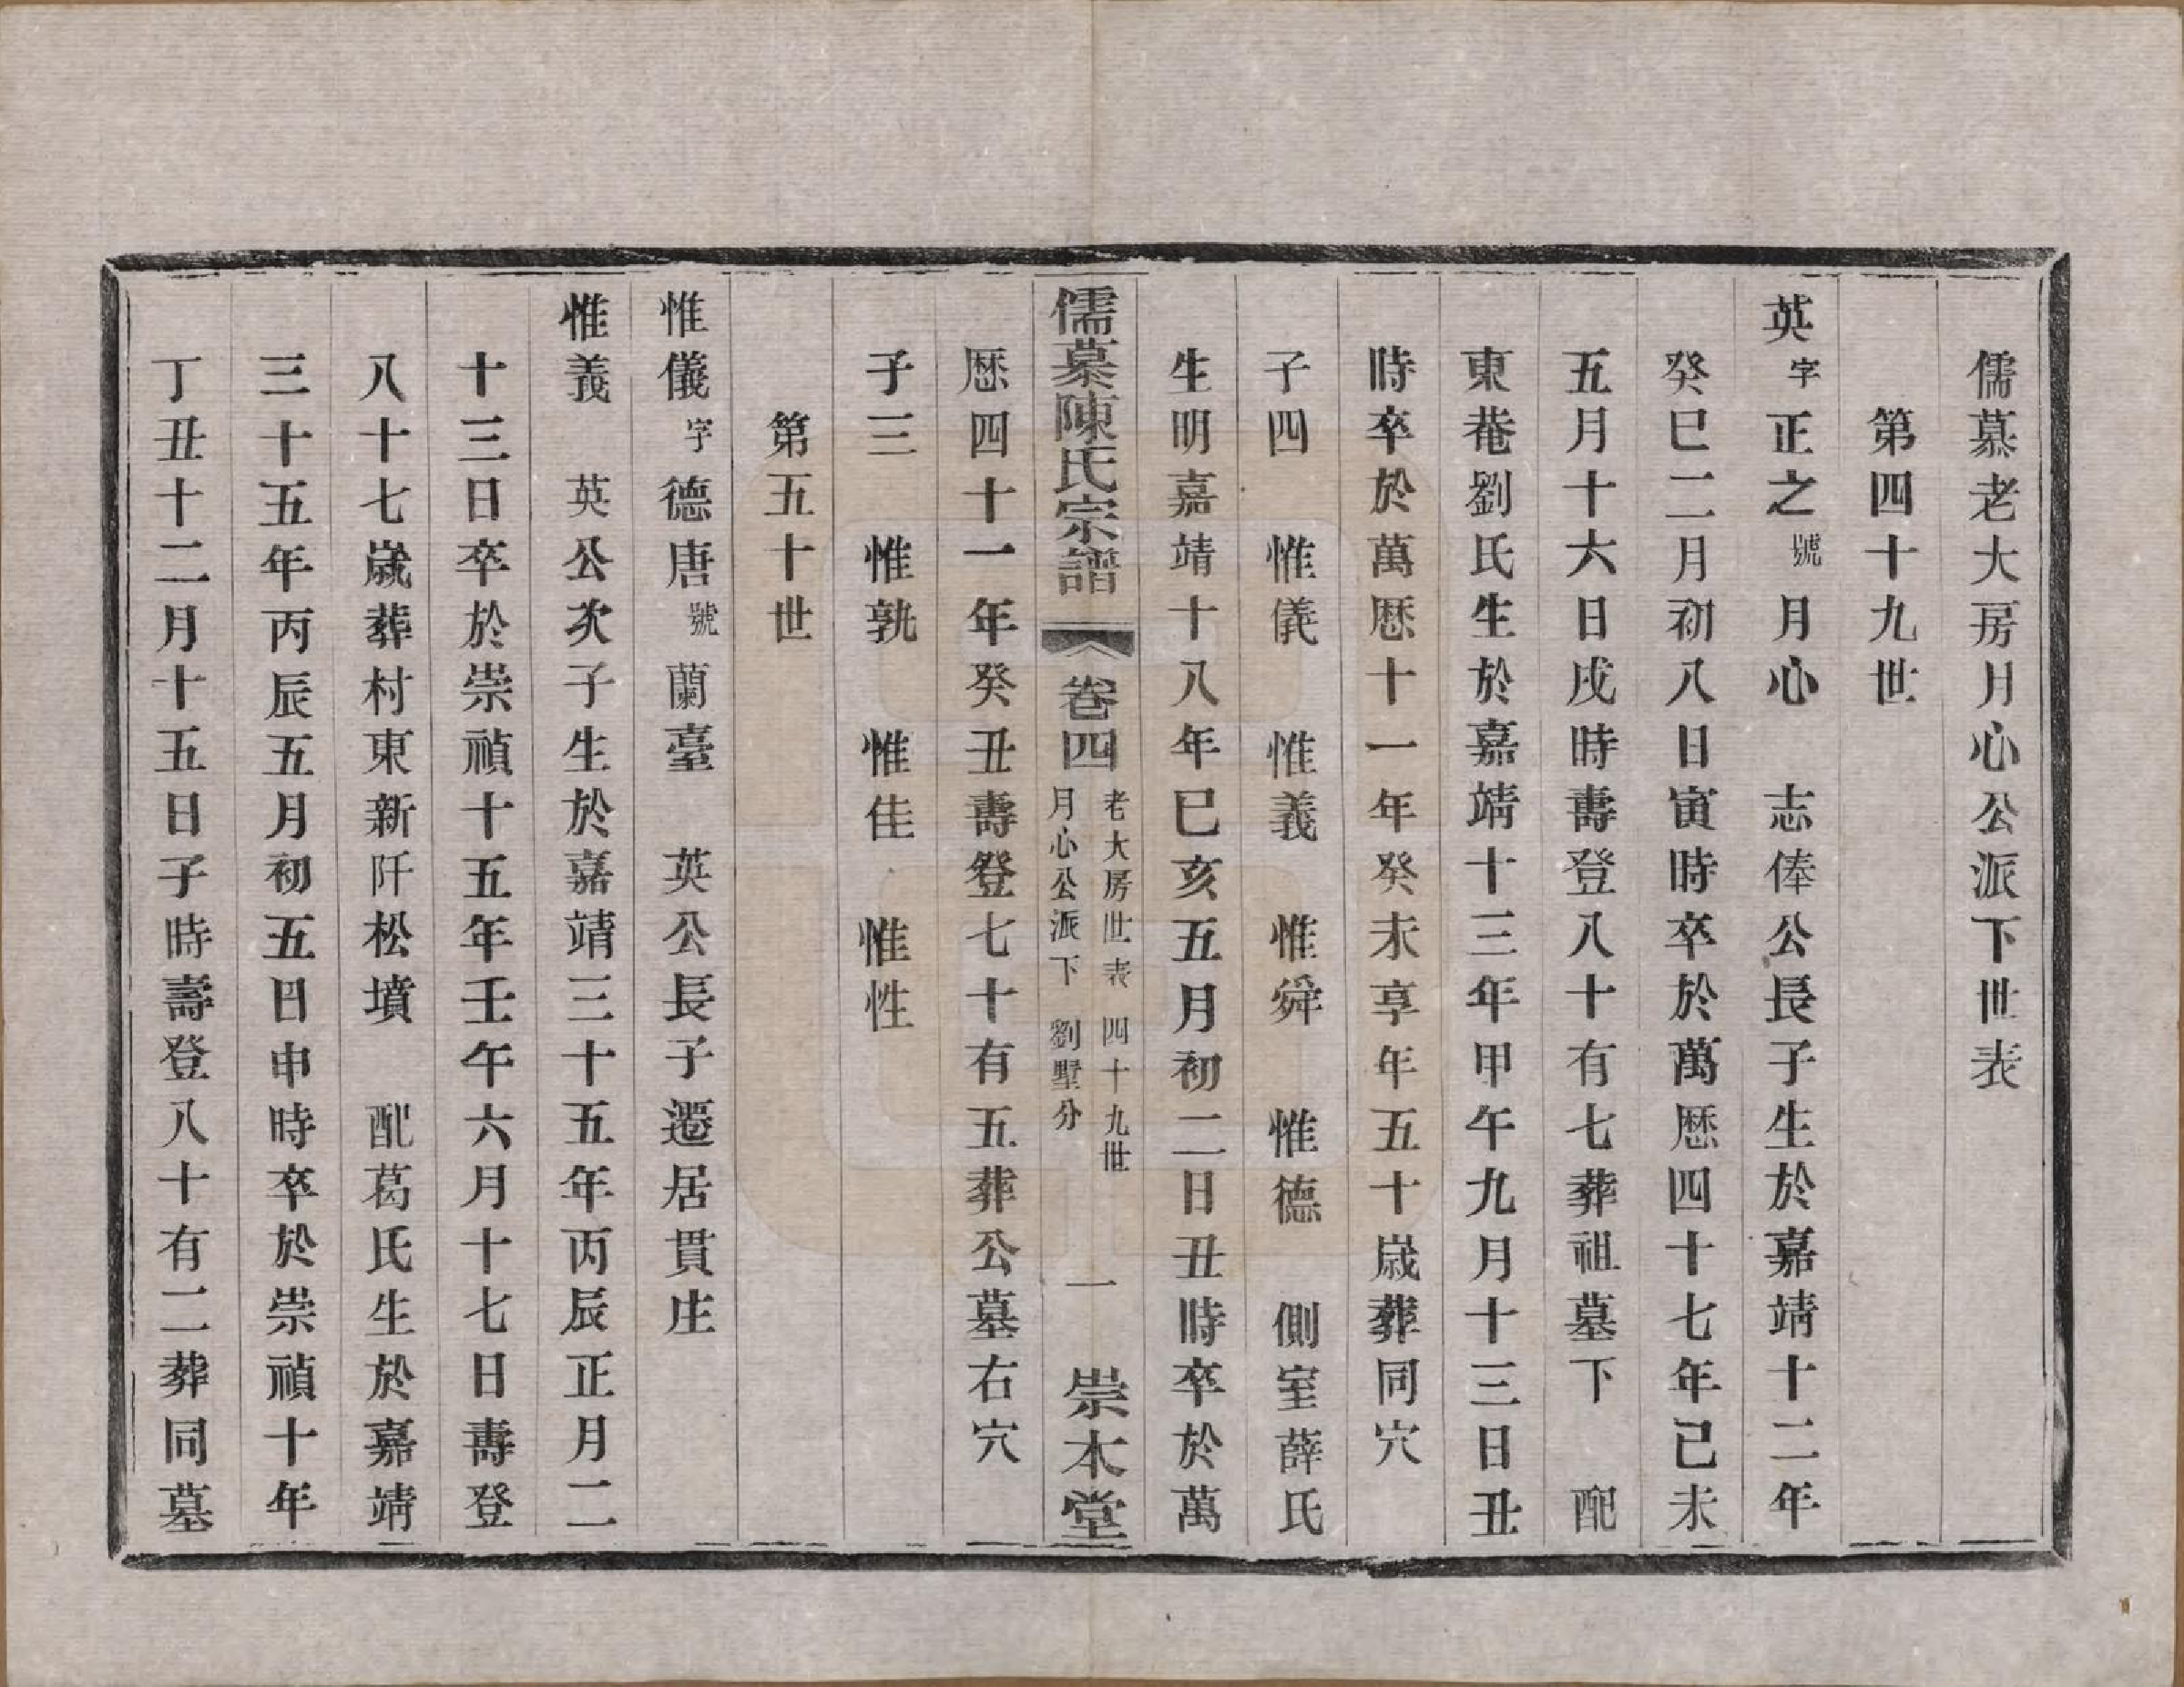 儒慕老大房月心公派下世表
第四十九世
英字正之號月心　志俸公長子生於嘉靖十二年
癸巳二月初八日寅時卒於萬厯四十七年己未
五月十六日戌時壽登八十有七葬祖墓下　配
東菴劉氏生於嘉靖十三年甲午九月十三日丑
時卒於萬厯十一年癸未享年五十歲葬同穴
子四　惟儀　惟義　惟舜　惟德　側室薛氏
生明嘉靖十八年已亥五月初二日丑時卒於萬
儒慕陳氏宗譜　卷四　老大房世表　四十九世　月心公派下　劉墅分　一　崇本堂
厯四十一年癸丑壽登七十有五葬公墓右穴
子三　惟孰　惟佳　惟性
第五十世
惟儀字德唐號蘭臺　英公長子遷居貫庄
惟義　英公次子生於嘉靖三十五年丙辰正月二
十三日卒於崇禎十五年壬午六月十七日壽登
八十七歲葬村東新阡松墳　配葛氏生於嘉靖
三十五年丙辰五月初五日申時卒於崇禎十年
丁丑十二月十五日子時壽登八十有二葬同墓